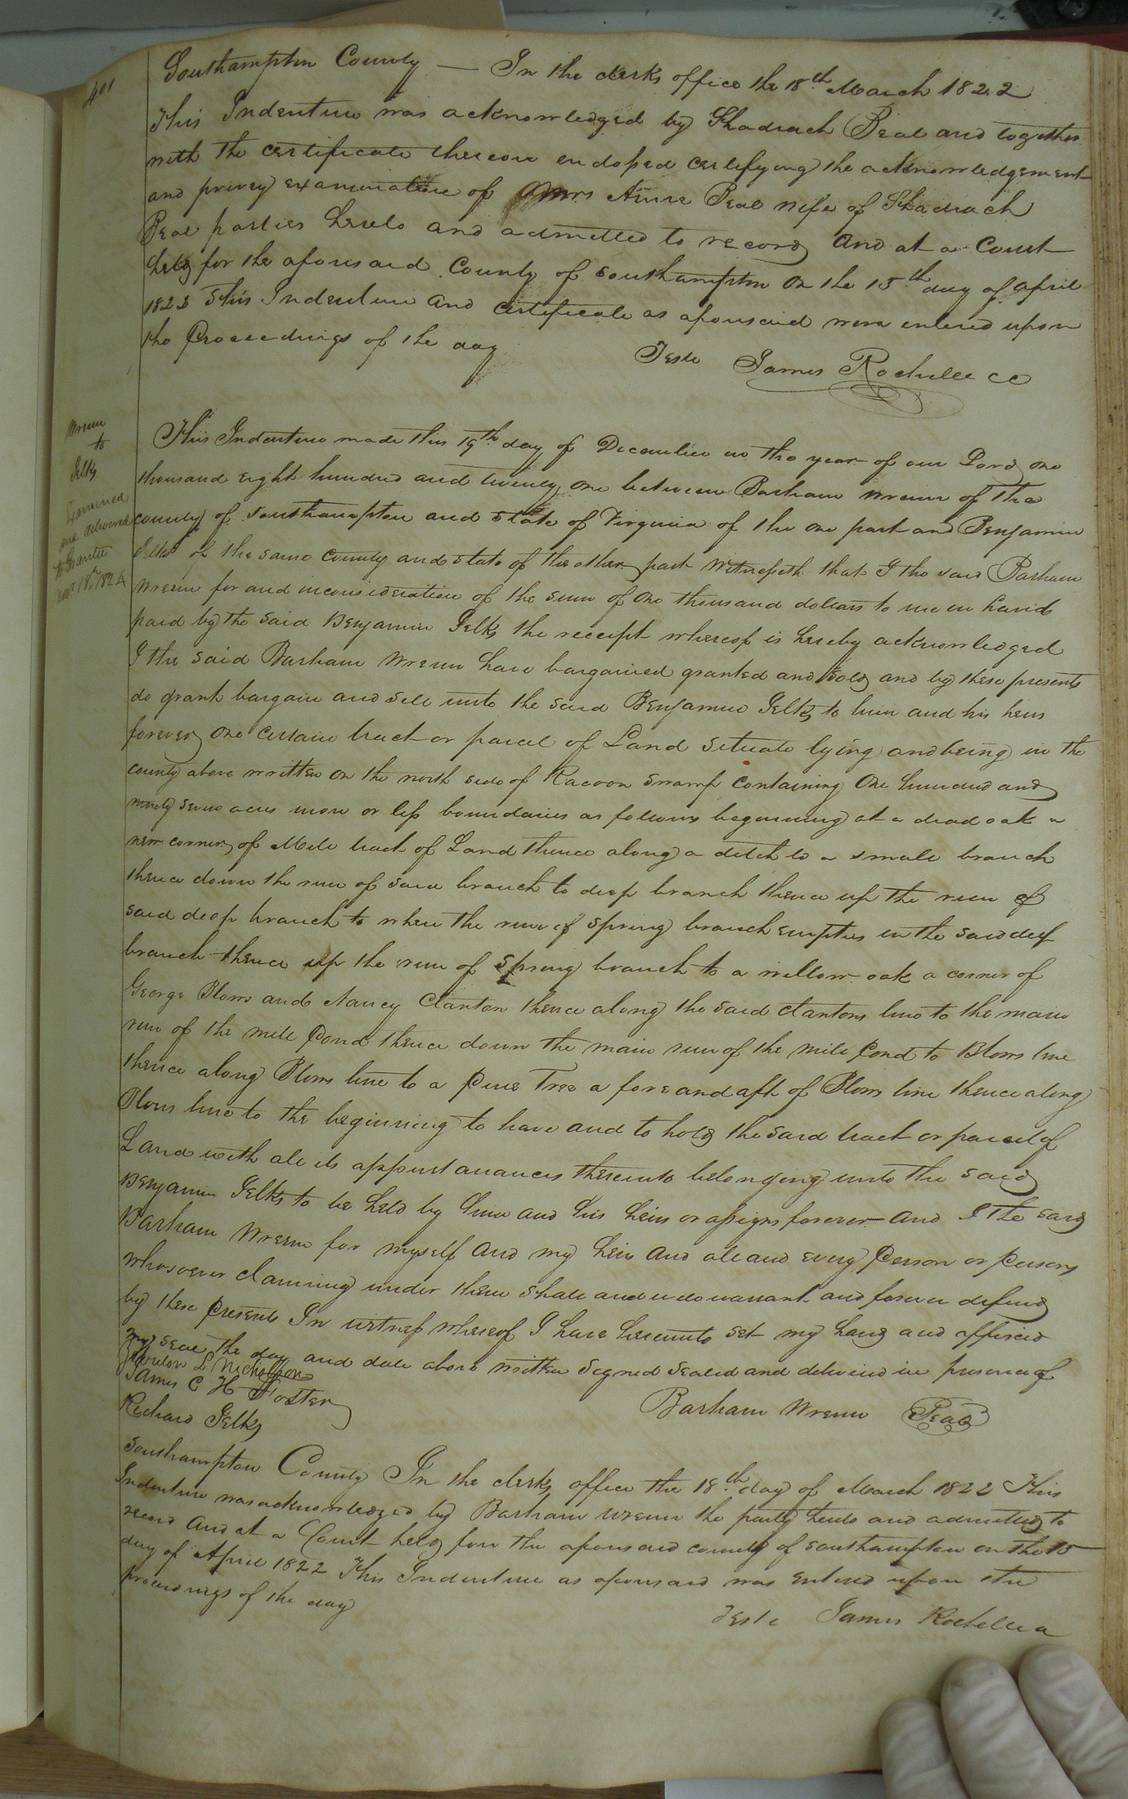 401
Southampton County — In the clerks office the 18th March 1822
This Indenture was acknowledged by Shadrach Beal and together
with the certificate thereon endorsed certifying the acknowledgement
and privey examination of Anne Beal wife of Shadrach
Beal parties hereto and admitted to record And at a Court
held for the aforesaid County of Southampton on the 15th day of April
1822 This Indenture and Certificate as aforesaid were entered upon
the Proceedings of the day
Teste James Rochelle cc
Wrenn
to
Jelks
Examined
and delivered
to Grantee
18th 1824
This Indenture made this 19th day of December in the year of our Lord one
thousand eight hundred and twenty one between Barham Wrenn of the
county of Southampton and state of Virginia of the one part and Benjamin
Jelks of the same county and state of the other part Witnesseth that I the said Barham
Wrenn for and inconsideration of the sum of one thousand dollars to me in hand
paid by the said Benjamin Jelks the receipt whereof is hereby acknowledged
I the said Barham Wrenn have bargained granted and sold and by these presents
do grant bargain and sell unto the said Benjamin Jelks to him and his heirs
forever one certain tract or parcel of Land situate lying and being in the
county above written on the north side of Racoon swamp containing One hundred and
ninety seven acres more or less boundaries as follows beginning at a dead oak a
new corner of Mill tract of Land thence along a ditch to a small branch
thence down the run of said branch to deep branch thence up the run of
said deep branch to where the run of spring branch empties in the said deep
branch thence up the run of spring branch to a willow oak a corner of
George Blows and Nancy Clanton thence along the said Clantons line to the main
run of the mill Pond thence down the main run of the mill Pond to Blows line
thence along Blows line to a Pine Tree a fore and aft of Blows line thence along
Blows line to the beginning to have and to hold the said tract or parcel of
Land with all its appurtanances thereunto belonging unto the said
Benjamin Jelks to be held by him and his heirs or assigns forever And I the said
Barham Wrenn for myself and my heir and all and every Person or Persons
whosoever claiming under them shall and will warrant and forever defend
by these Presents In witness whereof I have hereunto set my hand and affixed
my seal the day and date above written Signed Sealed and delivered in presence of
L Nicholson
James C H Foster
Richard Jelks
Barham Wrenn Seal
Southampton County In the clerks office the 18th day of March 1822 This
Indenture was acknowledged by Barham Wrenn the party hereto and admitted to
record And at a Court held for the aforesaid county of Southampton on the 15
day of April 1822 This Indenture as aforesaid was entered upon the
proceedings of the day
Teste James Rochelle